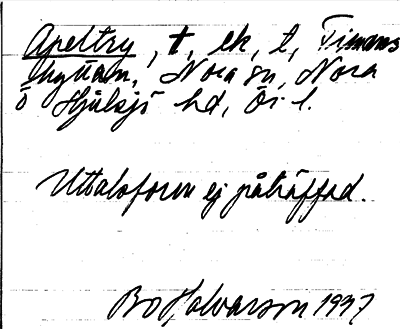 Apeltry, t, ek, t, Timans
hyttan, Nora sn, Nora
o Hjulsjö hd, Ör l.
Uttalsform ej påträffad.
Bo Halvarson 1937